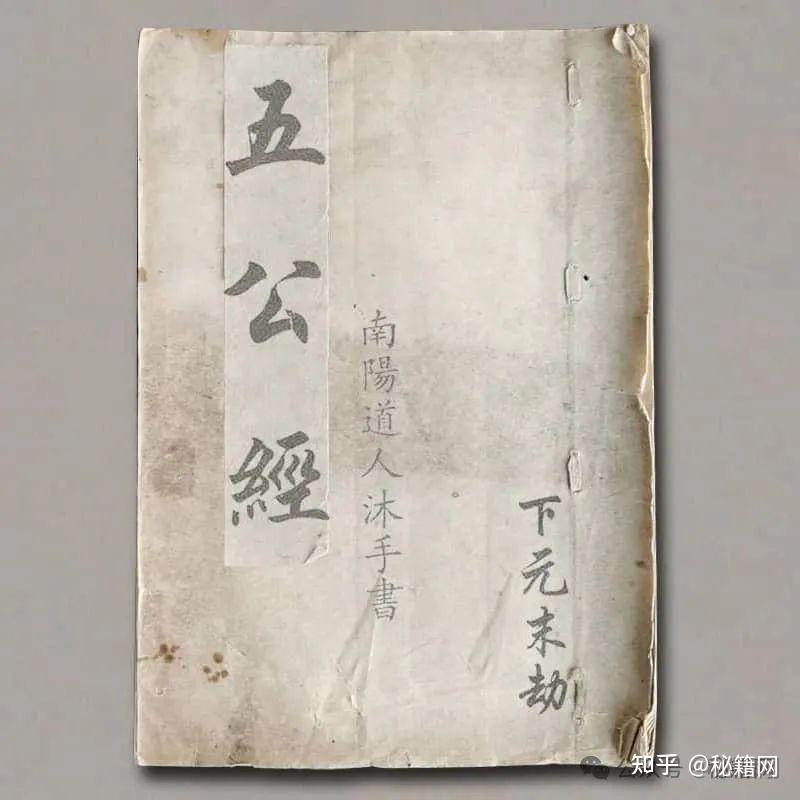 下元末劫
南陽道人沐手書
五公經
知乎 @秘籍网